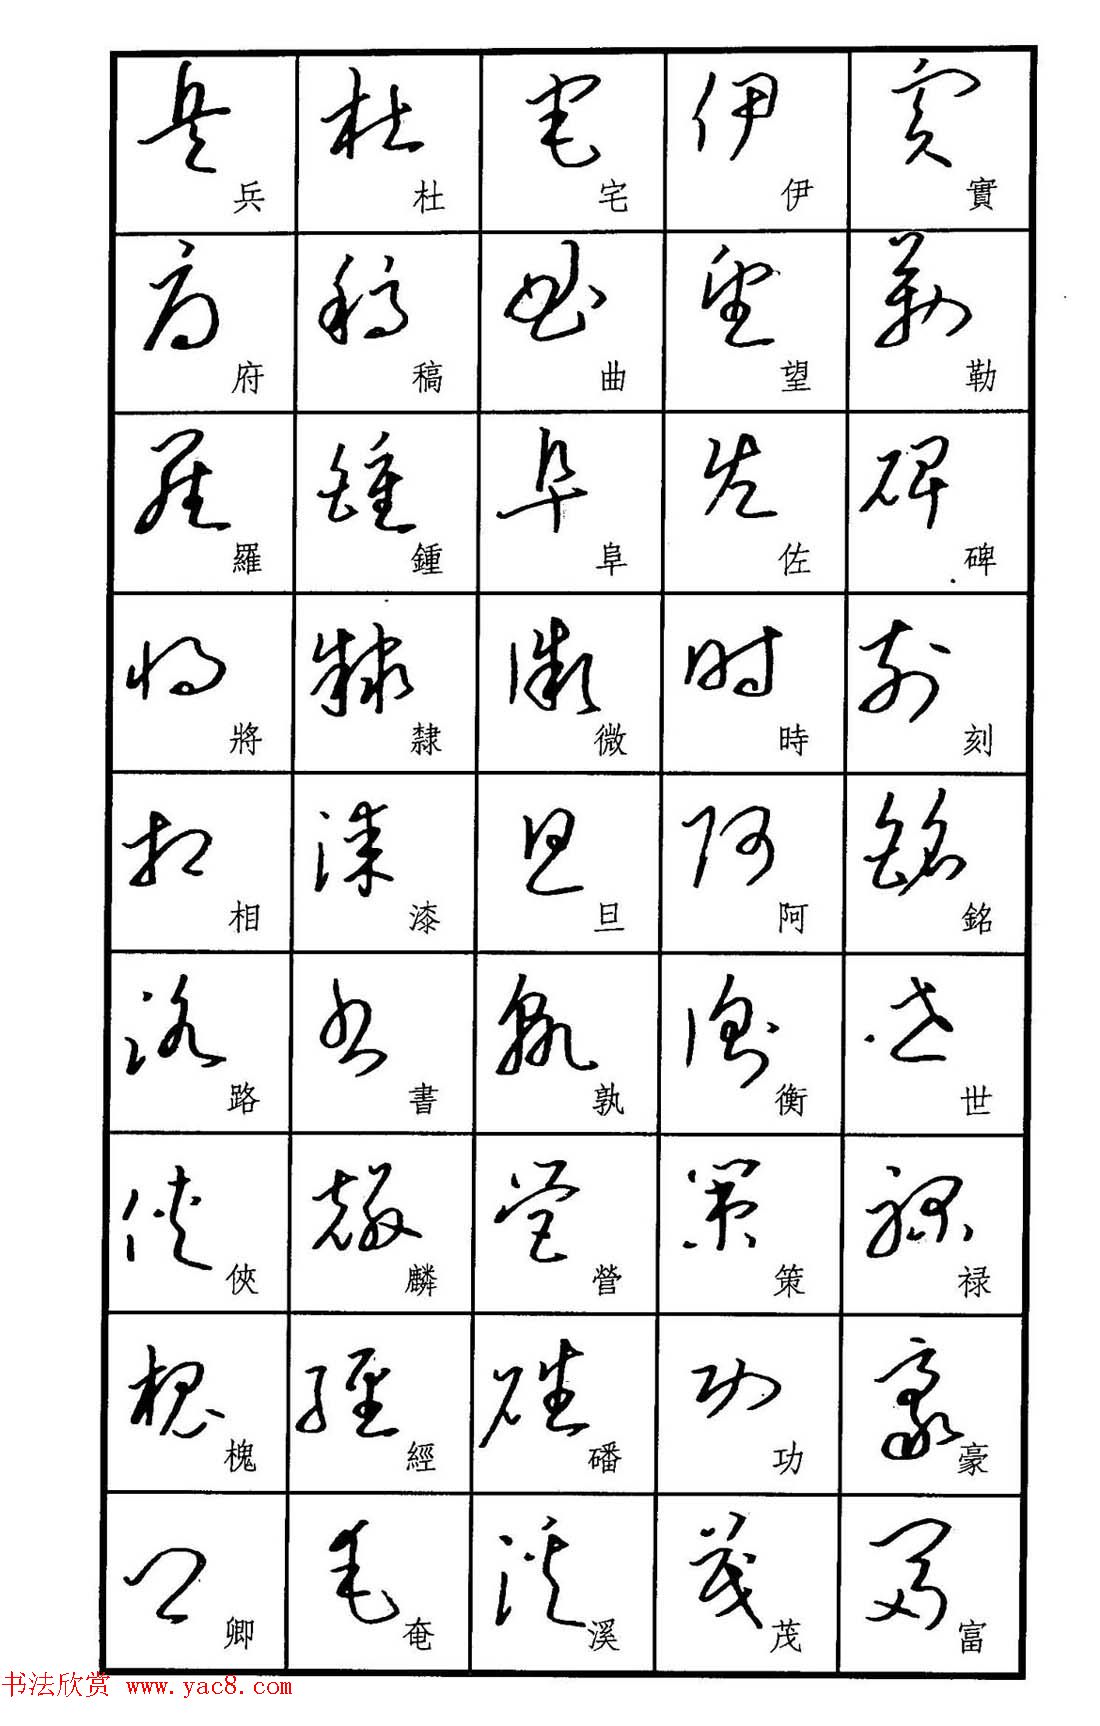 兵府羅將相路俠槐卿
杜稿鍾隸漆書麟經奄
宅曲阜微旦孰營磻溪
伊望佐時阿衡策功茂
實勒碑刻銘世禄豪富
书法欣赏 www.yac8.com